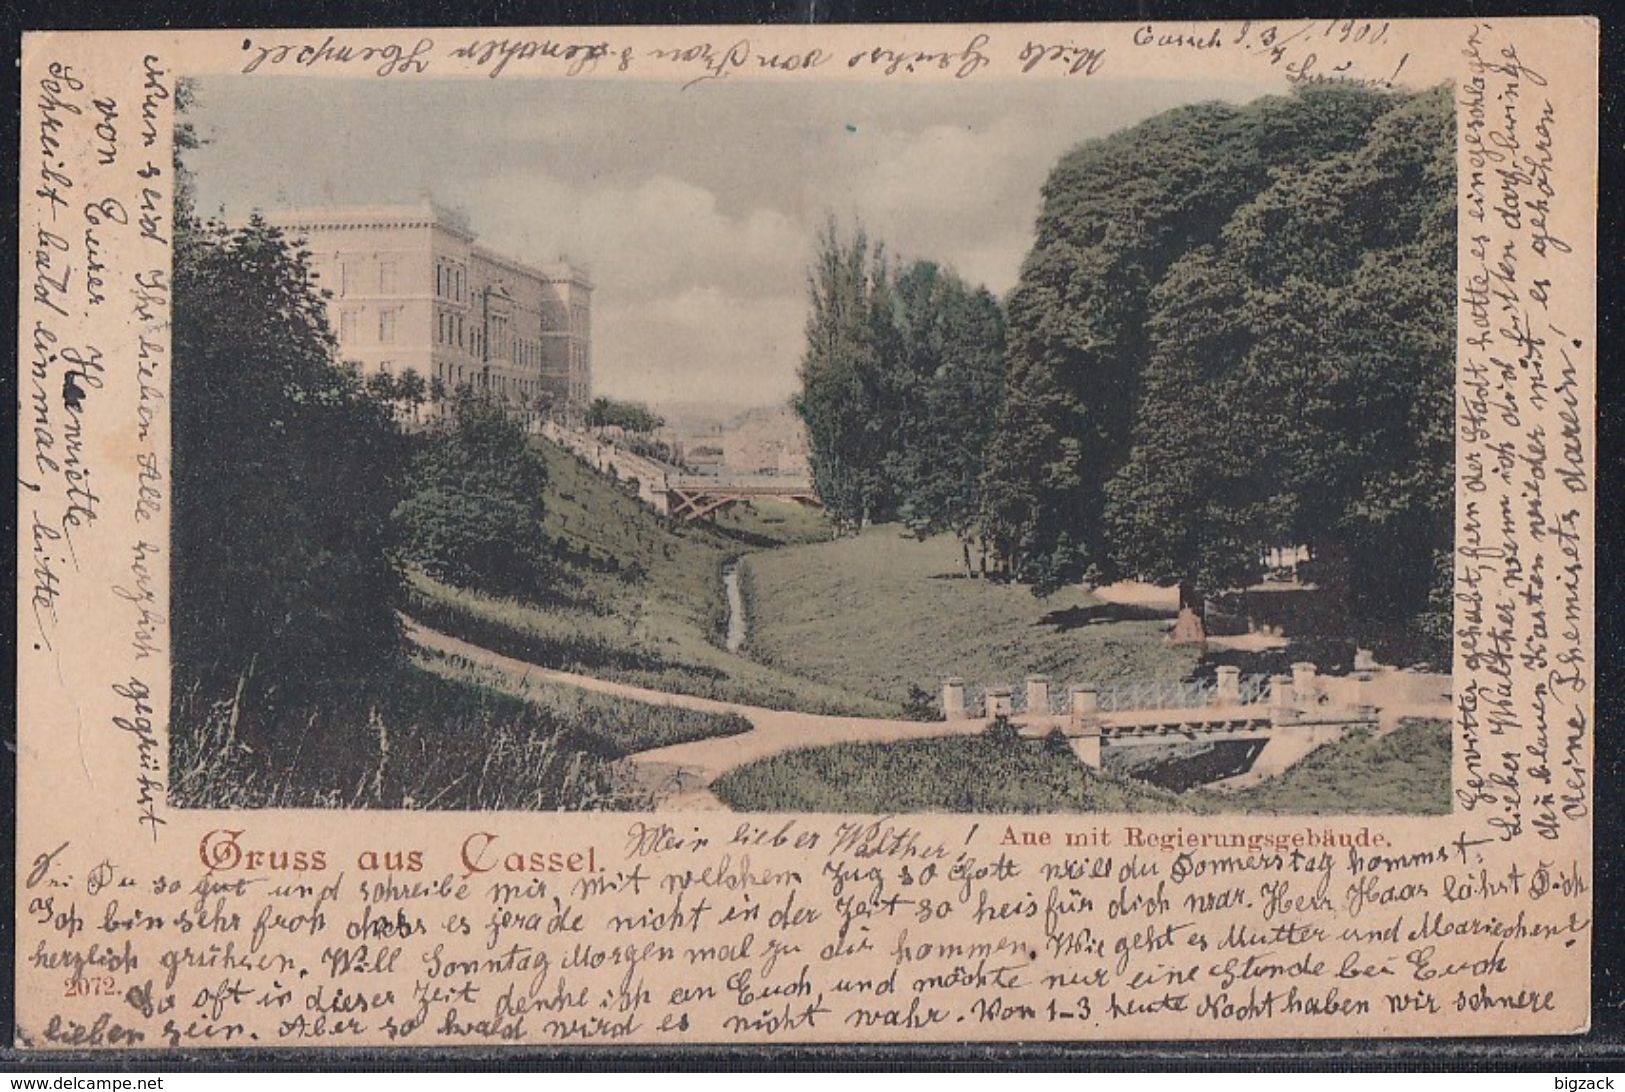 Cassel d. 3/4 1900.
Viele Grüsse von Frau Hempel.
Gruss aus Cassel.
Aue mit Regierungsgebäude.
Mein lieber Walther!
Sei Du so gut und schreibe mir, mit welchem Zug so Gott will du Donnerstag kommst.
Ich bin sehr froh dass es jerade nicht in der Zeit so heis für dich war. Herr Haas lähst Dich
herzlich grühsen. Will Sonntag Morgen mal zu dir kommen. Wie geht es Mutter und Mariechen?
2072.
So oft in dieser Zeit denke ich an Euch, und möchte nur eine Stunde bei Euch
lieben sein. Aber so bald wird es nicht wahr. Von 1-3 heute Nacht haben wir schwere
Gewitter gehabt, fern der Stadt hatte es eingeschlagen,
Lieber Walther wenn ich dich bitten darf, bringe
den blauen Kasten wieder mit, es gehöhren
Deine Chemisets darein!
Nun seid Ihr lieben Alle herzlich gegrühst
von Eurer Henriette
Schreibt bald einmal, bitte.
© bigzack-de
bigzack